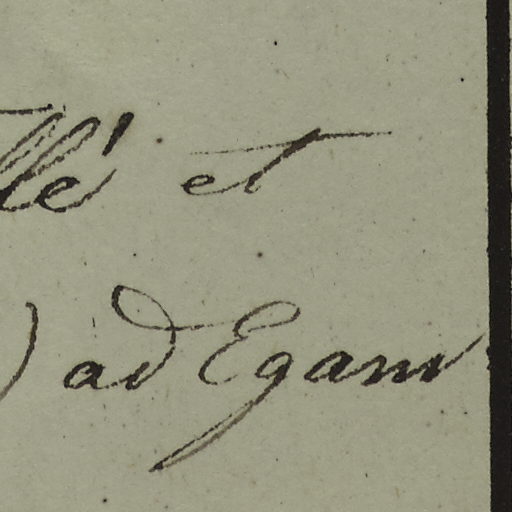 llé et
) ad Egam